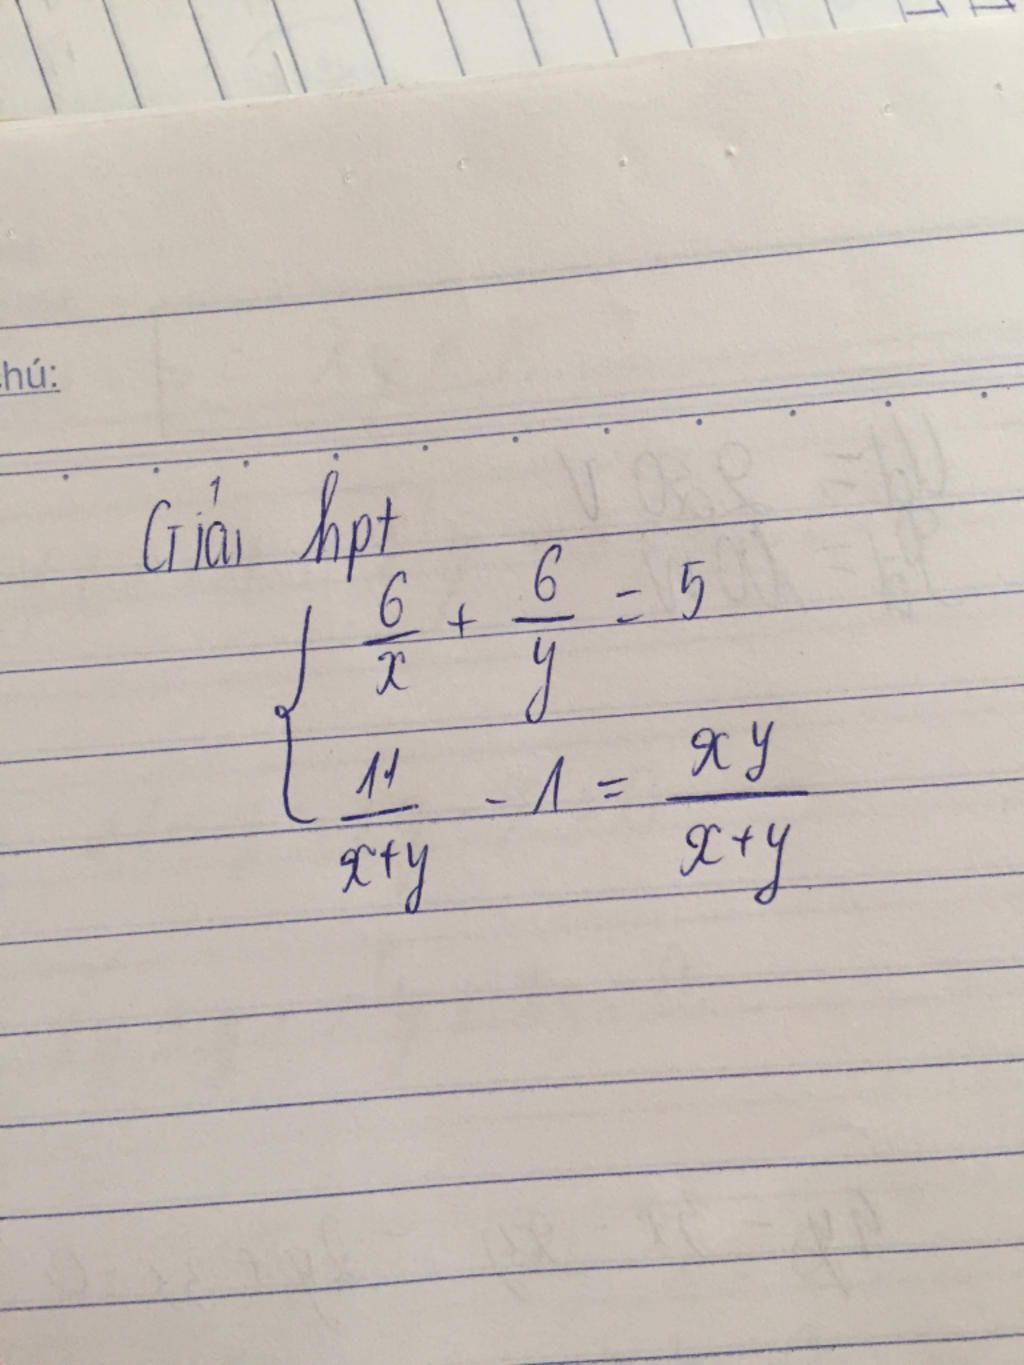 hú:
Giải hpt
6/x + 6/y = 5
11/x+y - 1 = xy/x+y